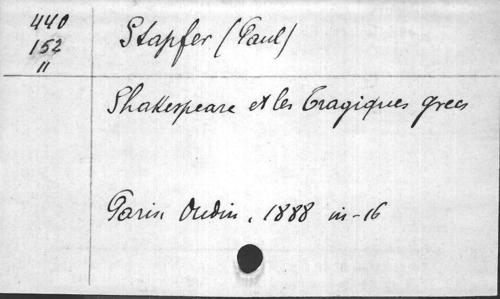 440
152
11
Stapfer (Paul)
Shakespeare et les Tragiques grecs
Paris Oudin, 1888 in-16